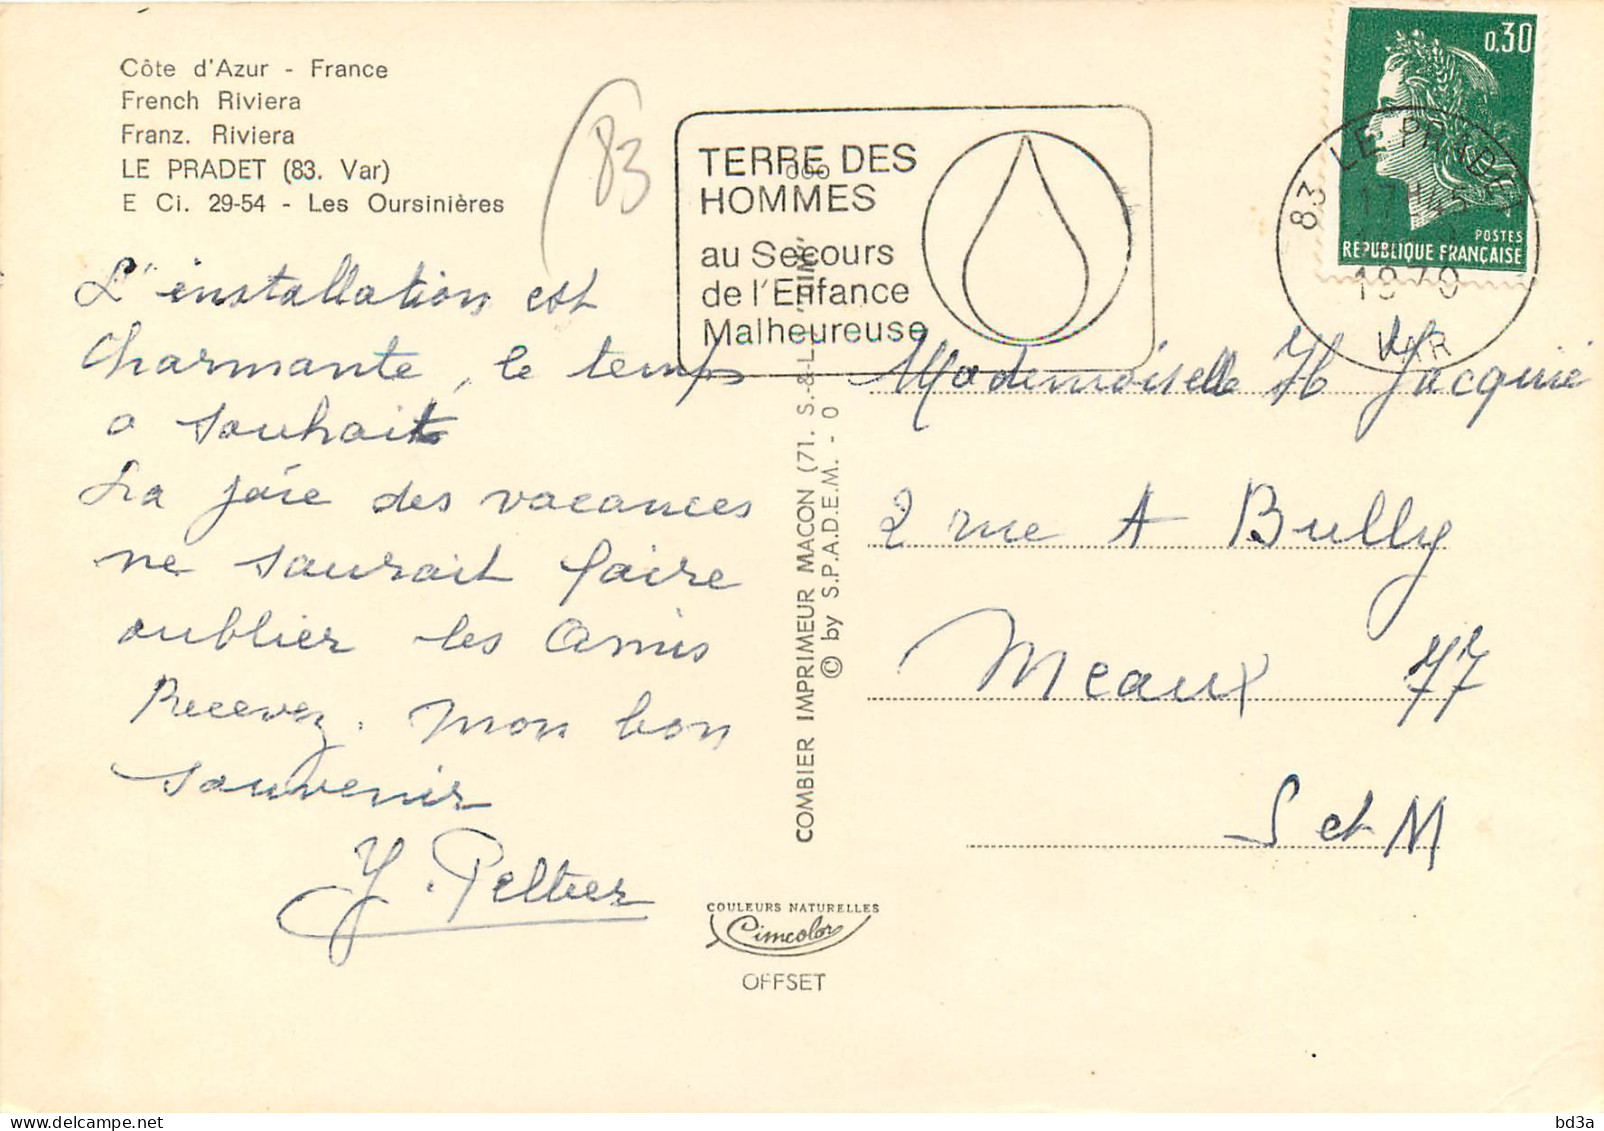 Côte d'Azur - France
French Riviera
Franz. Riviera
LE PRADET (83. Var)
E Ci. 29-54 - Les Oursinières
83
L'installation est
Charmante, le temps
a souhait
La joie des vacances
ne saurait faire
oublier les amis
Recevez. mon bon
souvenir
Y. Peltier
TERRE DES
HOMMES
au Secours
de l'Enfance
Malheureuse
COMBIER IMPRIMEUR MACON (71. S.-&-L.) "CIM"
© by S.P.A.D.E.M. - 0
COULEURS NATURELLES
Cimcolor
OFFSET
0,30
POSTES
REPUBLIQUE FRANÇAISE
83 LE PRADET
17 H45
1970
VAR
Mademoiselle H Jacquie
2 rue A Bully
Meaux 77
S et M
bd3a